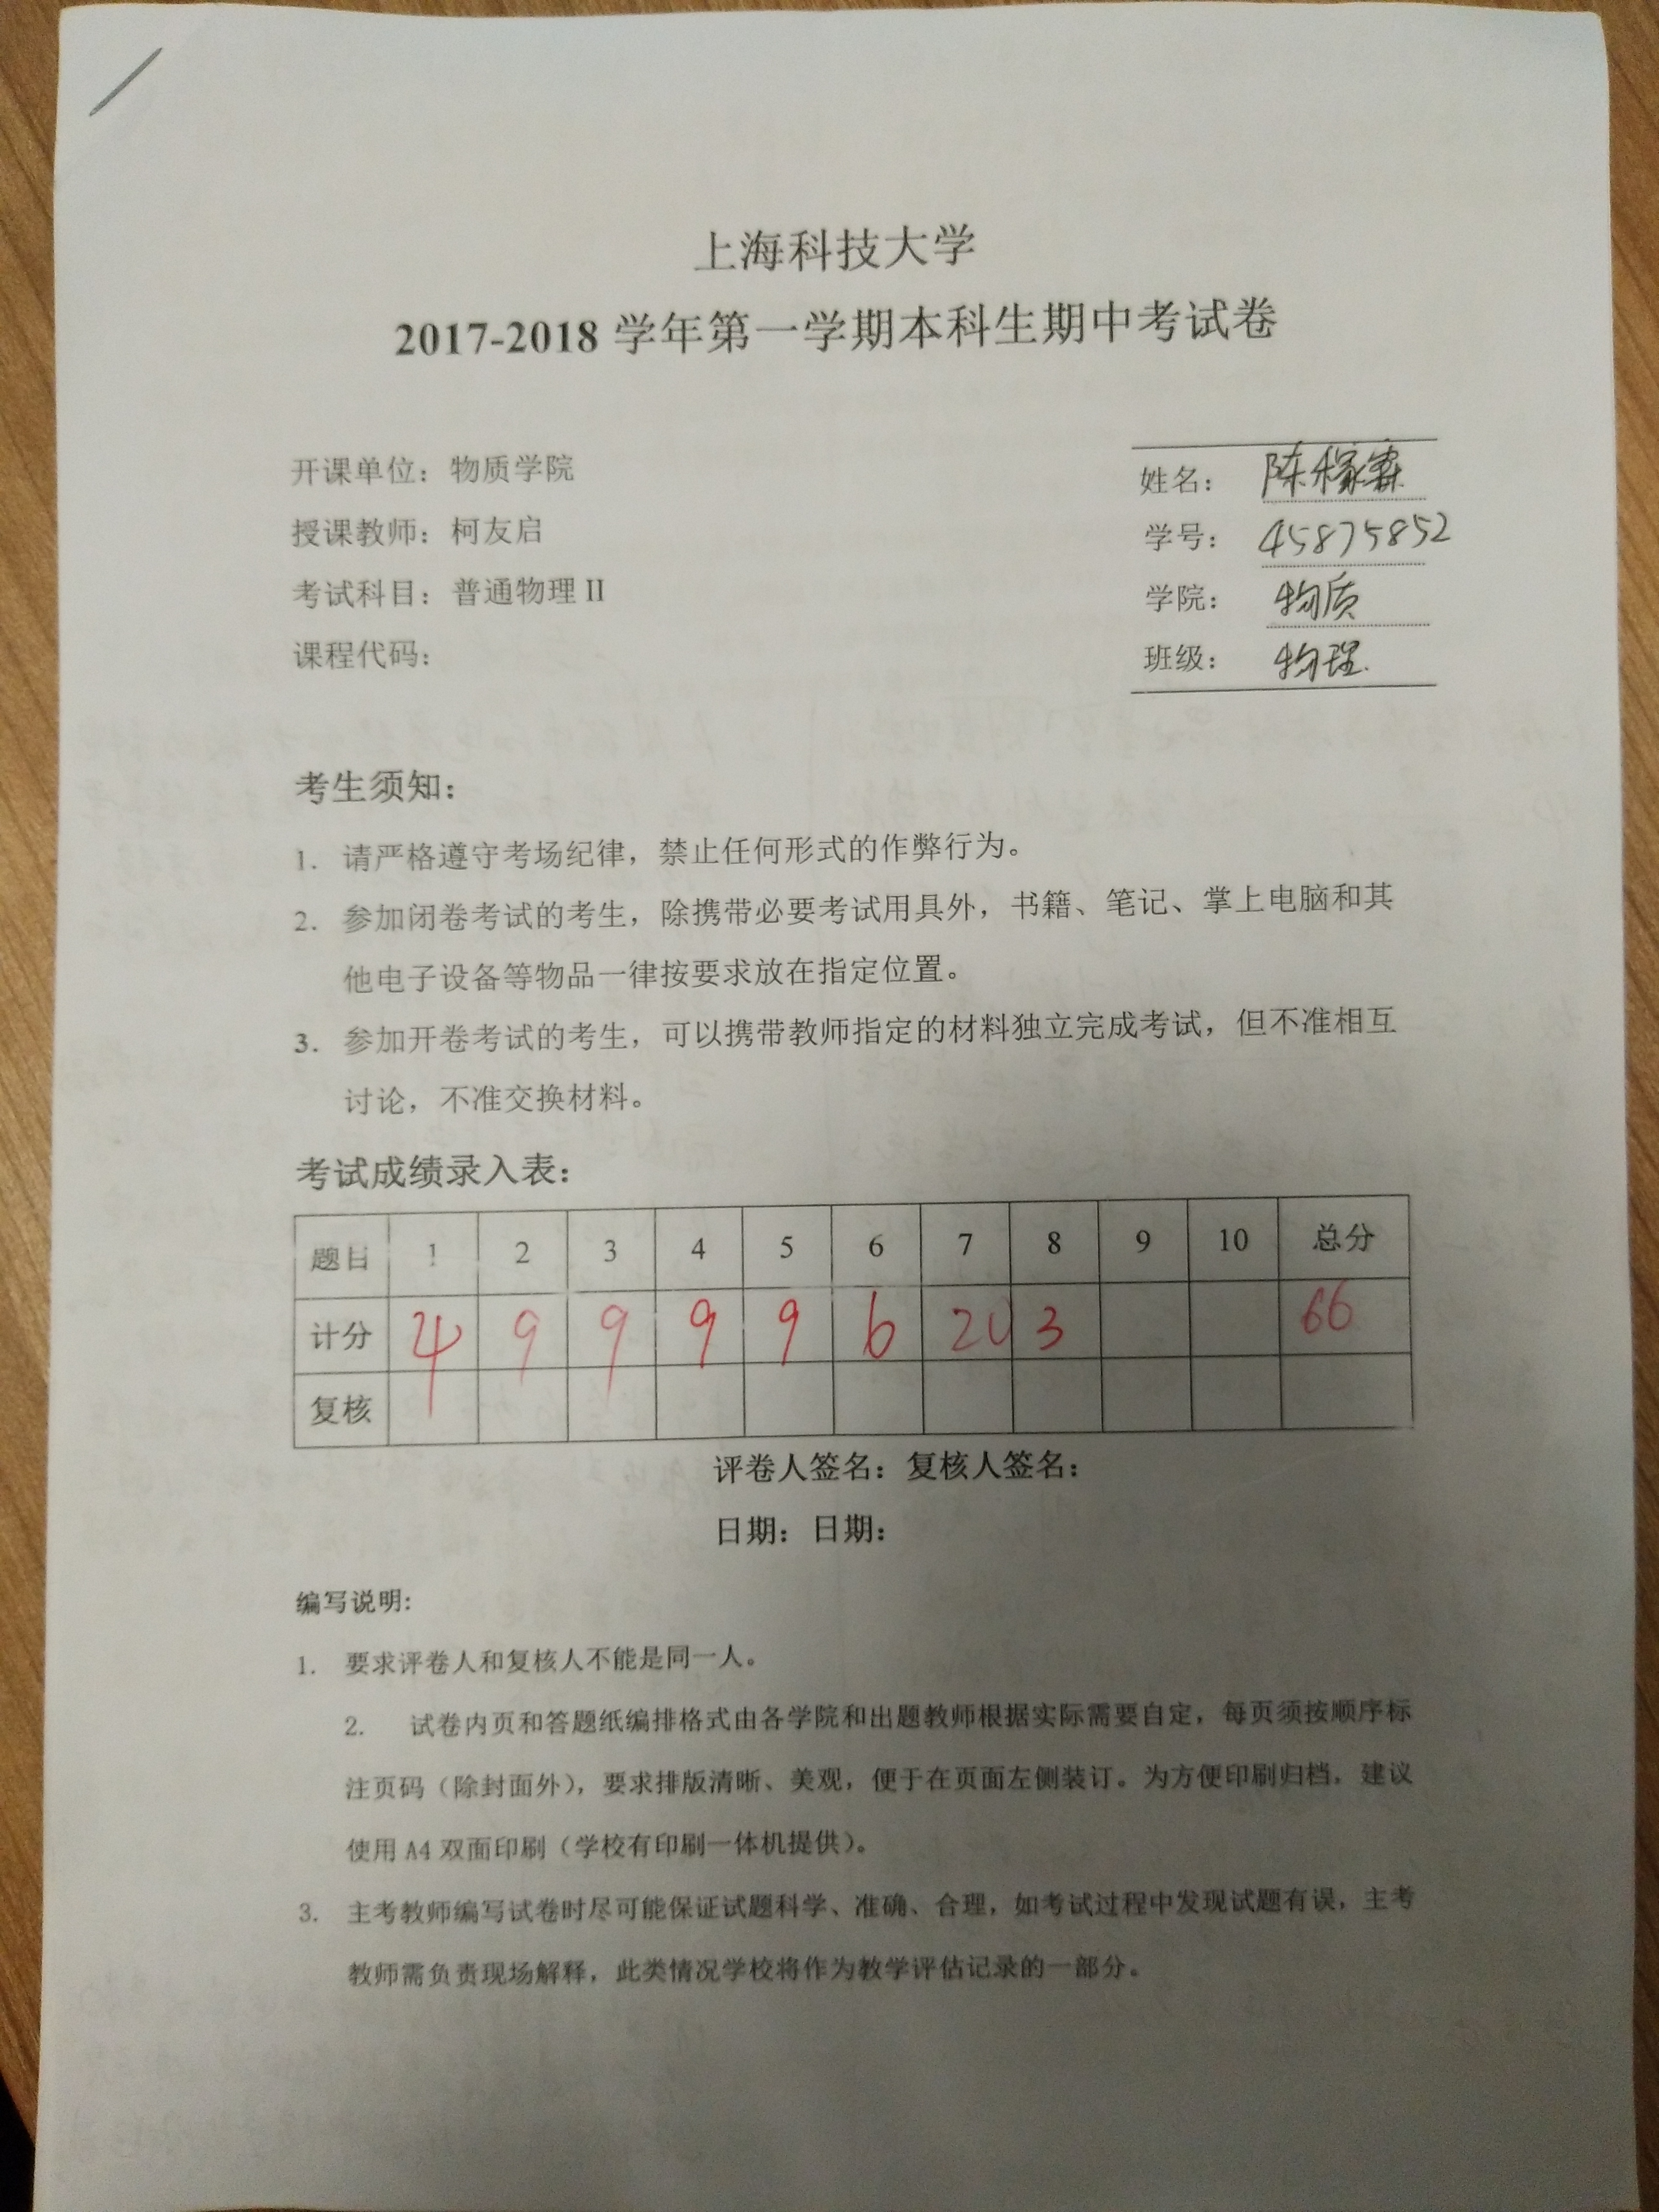 上海科技大学
2017-2018 学年第一学期本科生期中考试卷
开课单位：物质学院
授课教师：柯友启
考试科目：普通物理 II
课程代码：
姓名：陈稼霖
学号：45875852
学院：物质
班级：物理
考生须知：
1. 请严格遵守考场纪律，禁止任何形式的作弊行为。
2. 参加闭卷考试的考生，除携带必要考试用具外，书籍、笔记、掌上电脑和其
他电子设备等物品一律按要求放在指定位置。
3. 参加开卷考试的考生，可以携带教师指定的材料独立完成考试，但不准相互
讨论，不准交换材料。
考试成绩录入表：
题目 1 2 3 4 5 6 7 8 9 10 总分
计分 4 9 9 9 9 6 20 3 66
复核
评卷人签名：复核人签名：
日期：日期：
编写说明：
1. 要求评卷人和复核人不能是同一人。
2. 试卷内页和答题纸编排格式由各学院和出题教师根据实际需要自定，每页须按顺序标
注页码（除封面外），要求排版清晰、美观，便于在页面左侧装订。为方便印刷归档，建议
使用 A4 双面印刷（学校有印刷一体机提供）。
3. 主考教师编写试卷时尽可能保证试题科学、准确、合理，如考试过程中发现试题有误，主考
教师需负责现场解释，此类情况学校将作为教学评估记录的一部分。